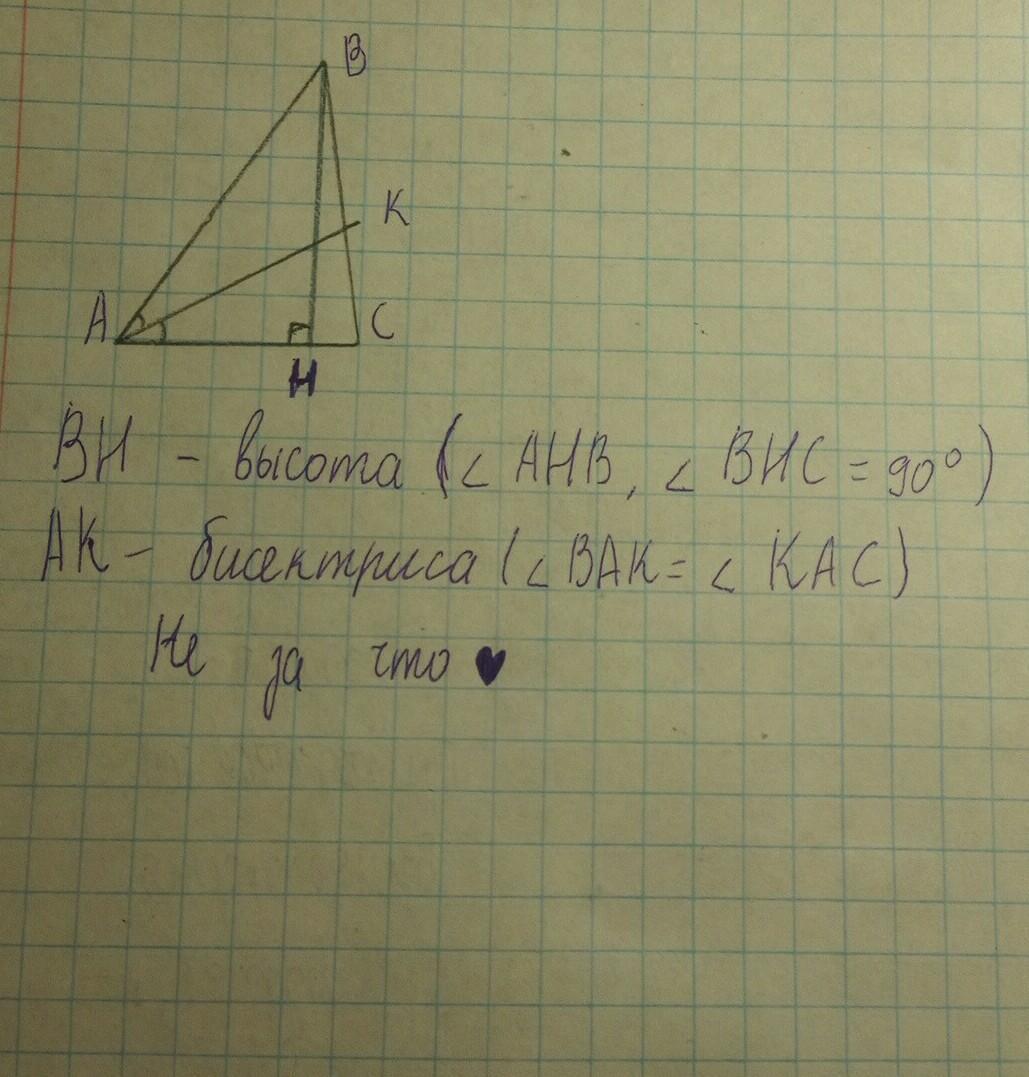 B
K
A
C
H
BH - высота (∠ AHB, ∠ BHC = 90°)
AK - бисектриса (∠ BAK = ∠ KAC)
Не за что ♥